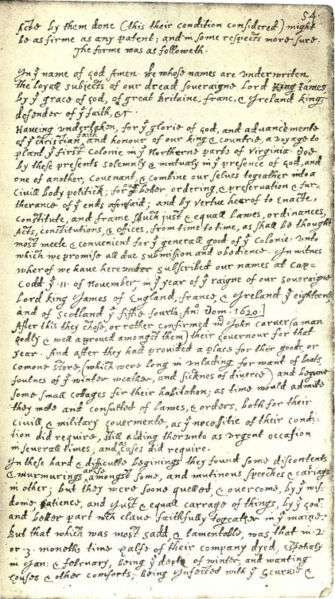 54.
sicte by them done (this their condition considered) might
be as firme as any patent; and in some respects more sure.
The forme was as followeth.
In yᵉ name of god Amen. we whose names are underwriten,
the loyall subjects of our dread soveraigne Lord King James
by yᵉ grace of god, of great Britaine, franc, & Ireland king,
defender of yᵉ faith, &c.
Haveing undertaken, for yᵉ glorie of god, and advancemente
of yᵉ christian faith and honour of our king & countrie, a voyage to
plant yᵉ first colonie in yᵉ Northerne parts of Virginia. doe
by these presents solemnly & mutualy in yᵉ presence of god, and
one of another, covenant, & combine our selves togeather into a
Civill body politick; for our better ordering, & preservation & fur-
therance of yᵉ ends aforesaid; and by vertue hearof to enacte,
constitute, and frame such just & equall lawes, ordinances,
Acts, constitutions, & offices, from time to time, as shall be thought
most meete & convenient for yᵉ generall good of yᵉ colonie: unto
which we promise all due submission and obedience. In witnes
wherof we have hereunder subscribed our names at Cap-
Codd yᵉ ·11· of November, in yᵉ year of yᵉ raigne of our soveraigne
Lord king James of England, france, & Ireland yᵉ eighteenth
and of Scotland yᵉ fiftie fourth. Anᵒ Dom. 1620.]
After this they chose, or rather confirmed mʳ John Carver (a man
godly & well approved amongst them) their Governour for that
year. And after they had provided a place for their goods, or
comone store, (which were long in unlading for want of boats,
foulnes of yᵉ winter weather, and sicknes of diverce) and begune
some small cottages for their habitation; as time would admite
they mette and consulted of lawes, & orders, both for their
civill, & military govermente, as yᵉ necessitie of their condi-
tion did require, still adding therunto as urgent occasion
in severall times, and as cases did require.
In these hard & difficulte beginings they found some discontents
& murmurings amongst some, and mutinous speeches & cariags
in other; but they were soone quelled, & overcome, by yᵉ wis-
dome, patience, and just & equall carrage of things, by yᵉ Govʳ
and better part wᶜʰ clave faithfully togeather in yᵉ maine.
But that which was most sadd, & lamentable, was, that in 2.
or 3. moneths time halfe of their company dyed, espetialy
in Jan: & february, being yᵉ depth of winter, and wanting
houses & other comforts; being infected with yᵉ Scurvie &